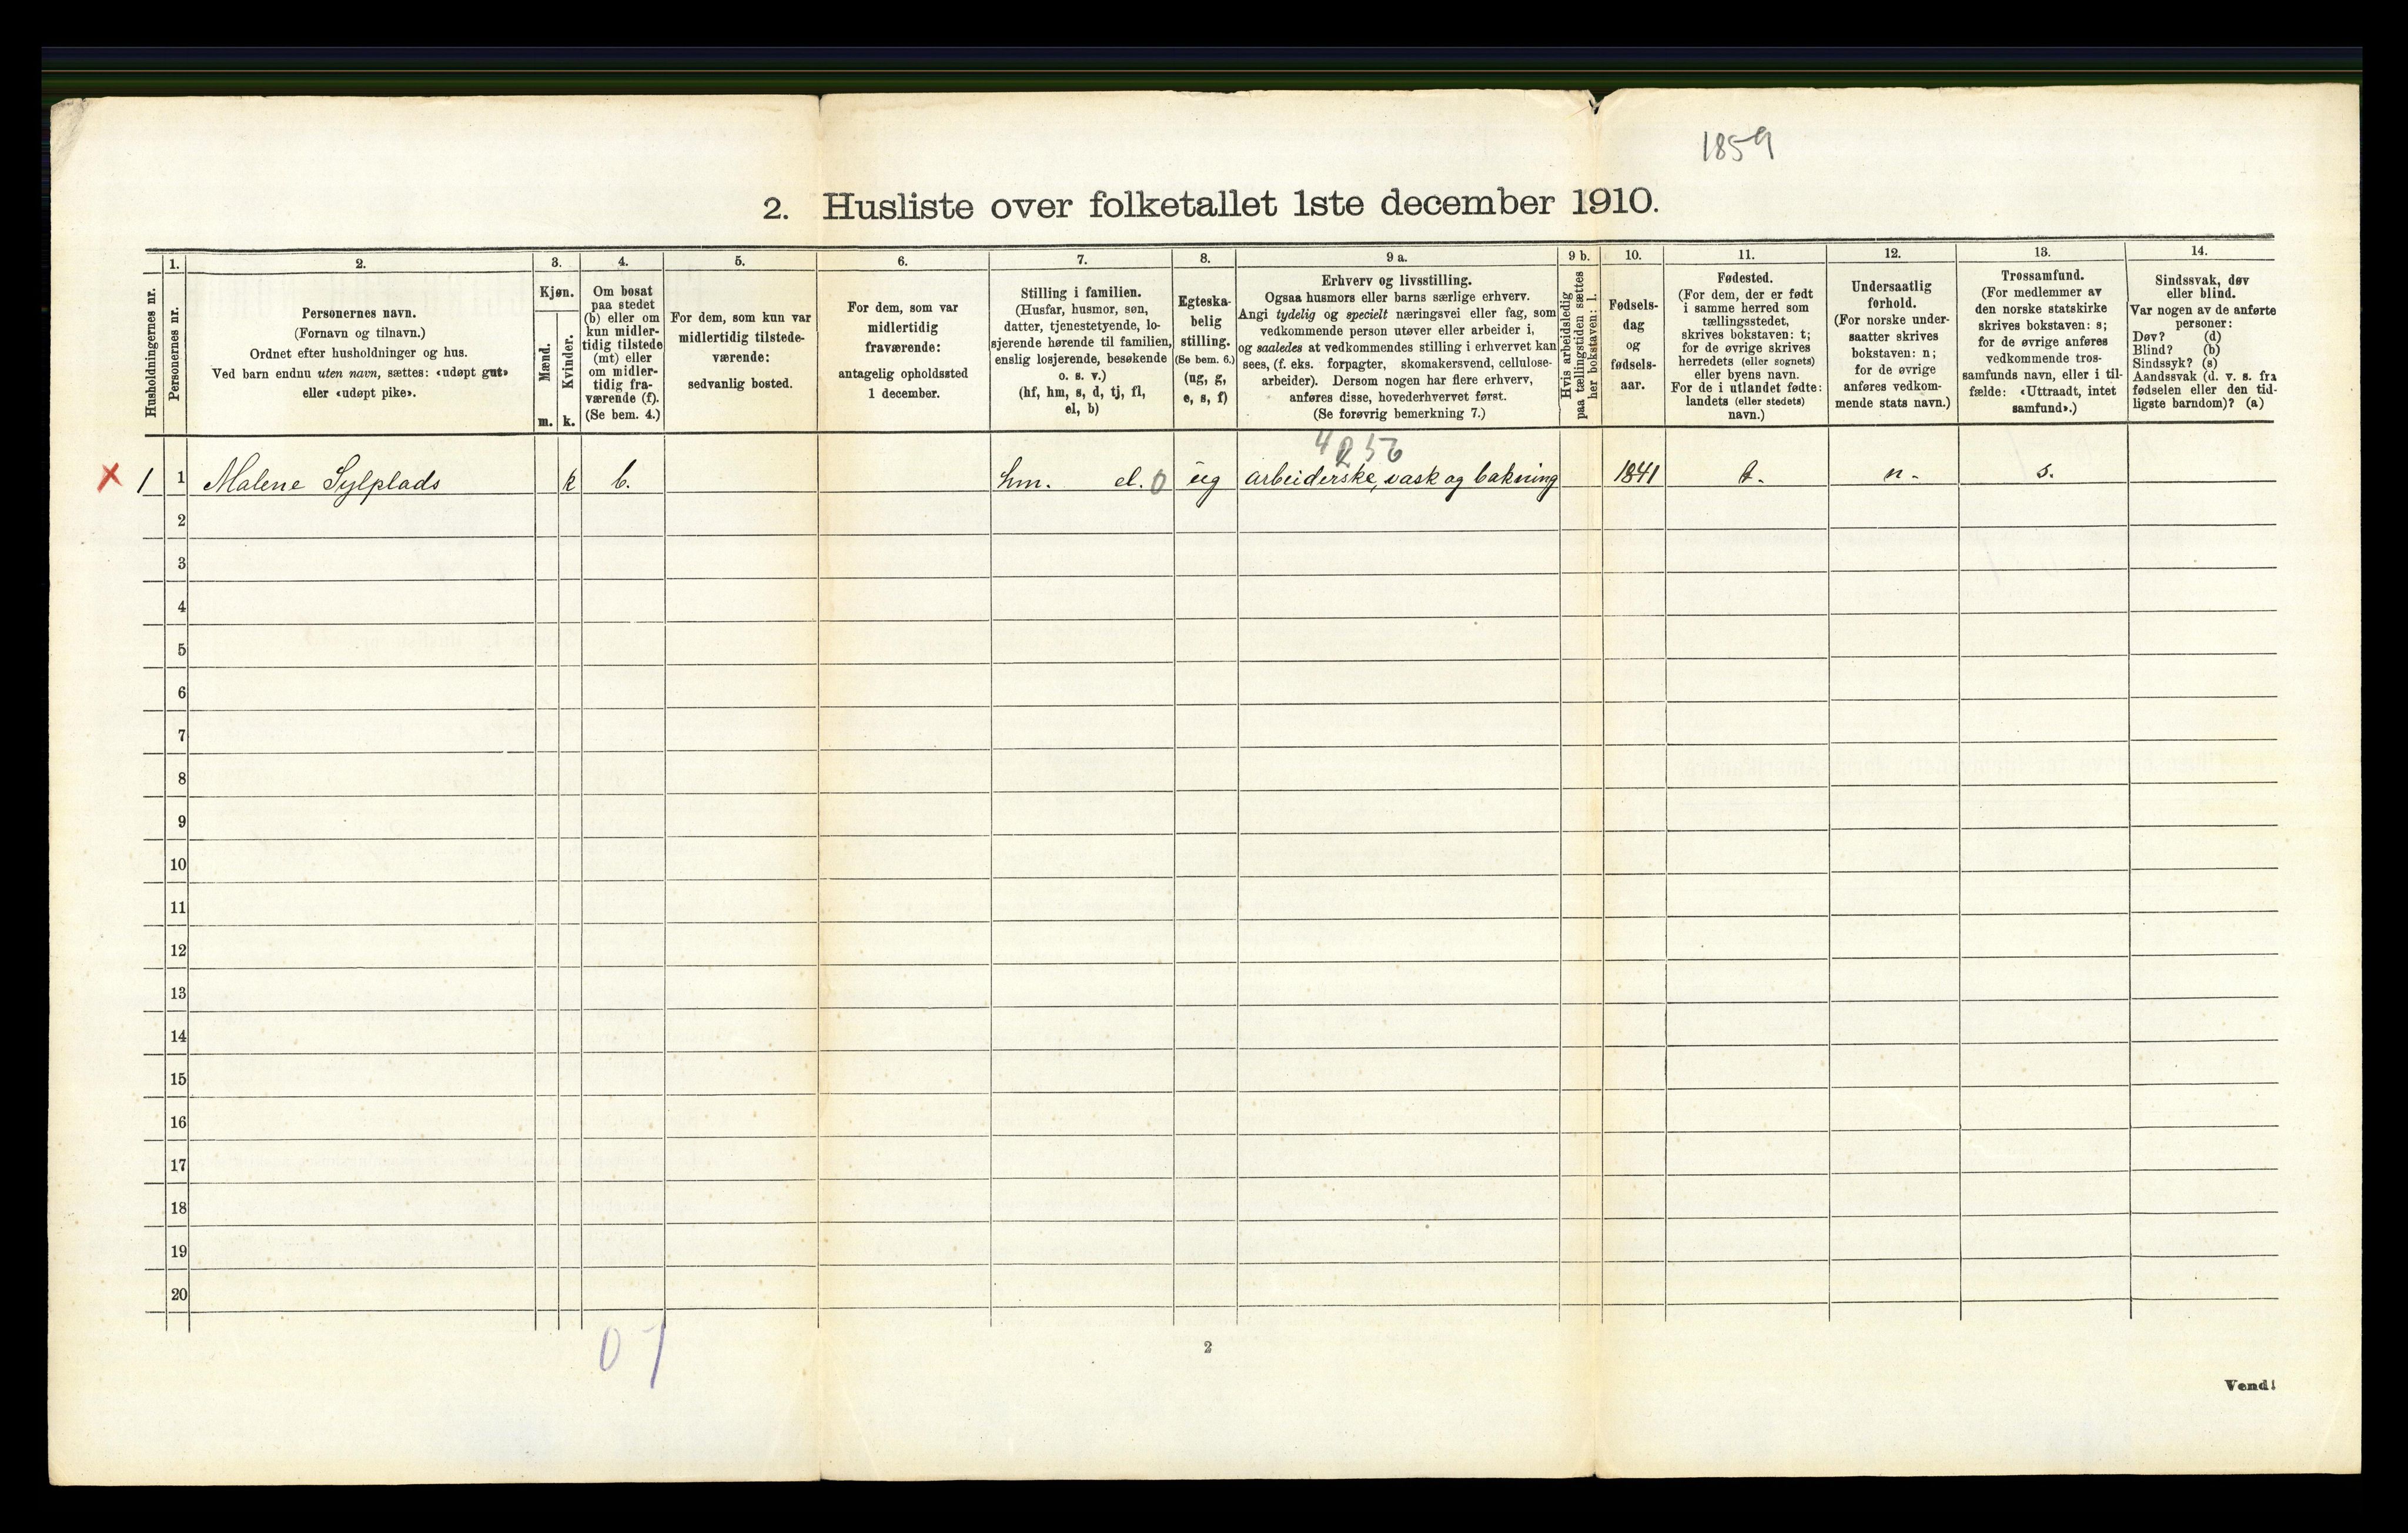 1859
2. Husliste over folketallet 1ste december 1910.
Husholdningernes nr.
1.
Personernes nr.
2.
Personernes navn.
(Fornavn og tilnavn.)
Ordnet efter husholdninger og hus.
Ved barn endnu uten navn, sættes: «udøpt gut»
eller «udøpt pike».
3.
Kjøn.
Mænd.
m.
Kvinder.
k.
4.
Om bosat
paa stedet
(b) eller om
kun midler-
tidig tilstede
(mt) eller
om midler-
tidig fra-
værende (f).
(Se bem. 4.)
5.
For dem, som kun var
midlertidig tilstede-
værende:
sedvanlig bosted.
6.
For dem, som var
midlertidig
fraværende:
antagelig opholdssted
1 december.
7.
Stilling i familien.
(Husfar, husmor, søn,
datter, tjenestetyende, lo-
sjerende hørende til familien,
enslig losjerende, besøkende
o. s. v.)
(hf, hm, s, d, tj, fl,
el, b)
8.
Egteska-
belig
stilling.
(Se bem. 6.)
(ug, g,
e, s, f)
9 a.
Erhverv og livsstilling.
Ogsaa husmors eller barns særlige erhverv.
Angi tydelig og specielt næringsvei eller fag, som
vedkommende person utøver eller arbeider i,
og saaledes at vedkommendes stilling i erhvervet kan
sees, (f. eks. forpagter, skomakersvend, cellulose-
arbeider). Dersom nogen har flere erhverv,
anføres disse, hovederhvervet først.
(Se forøvrig bemerkning 7.)
9 b.
Hvis arbeidsledig
paa tællingstiden sættes
her bokstaven: l.
10.
Fødsels-
dag
og
fødsels-
aar.
11.
Fødested.
(For dem, der er født
i samme herred som
tællingsstedet,
skrives bokstaven: t;
for de øvrige skrives
herredets (eller sognets)
eller byens navn.
For de i utlandet fødte:
landets (eller stedets)
navn.)
12.
Undersaatlig
forhold.
(For norske under-
saatter skrives
bokstaven: n;
for de øvrige
anføres vedkom-
mende stats navn.)
13.
Trossamfund.
(For medlemmer av
den norske statskirke
skrives bokstaven: s;
for de øvrige anføres
vedkommende tros-
samfunds navn, eller i til-
fælde: «Uttraadt, intet
samfund».)
14.
Sindssvak, døv
eller blind.
Var nogen av de anførte
personer:
Døv? (d)
Blind? (b)
Sindssyk? (s)
Aandssvak (d. v. s. fra
fødselen eller den tid-
ligste barndom)? (a)
X 1 1 Malene Sylplads k b. hm. el. 0 ug arbeiderske, vask og bakning 1841 t. n. s.
2
3
4
5
6
7
8
9
10
11
12
13
14
15
16
17
18
19
20
0 1
2
Vend!